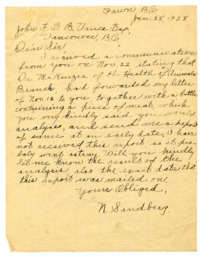 Fawn B.C.
Jan. 28 1928
John F. C. B. Vance Esq,
Vancouver B.C.
Dear Sir
I received a communication
from you on Nov. 22 stating that
Dr McKenzie of the Health of Animals
Branch, had forwarded my letter
of Nov. 12 to you together with a bottle
containing a piece of meat, which
you very kindly said you would
analysis, and send me a report
of same at an early date. I have
not received this report, so it pro-
bably went astray. Will you kindly
let me know the result of the
analysis also the exact date that
this report was mailed on
Yours Obliged,
N. Sandberg